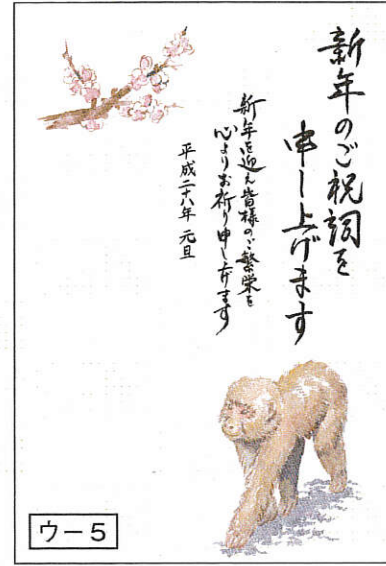 新年のご祝詞を
申し上げます
新年を迎え皆様のご繁栄を
心よりお祈り申し上げます
平成二十八年 元旦
ウー5